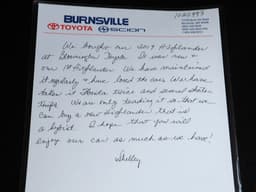 BURNSVILLE
TOYOTA SCION
We bought our 2009 Highlander
at Bloomington Toyota. It was new &
our 1st Highlander. We have maintained
it regularly & have loved the car. We have
taken it Florida twice and several other
trips. We are only trading it so that we
can buy a new Highlander that is
a hybrid. I hope that you will
enjoy our car as much as we have!
Shelley